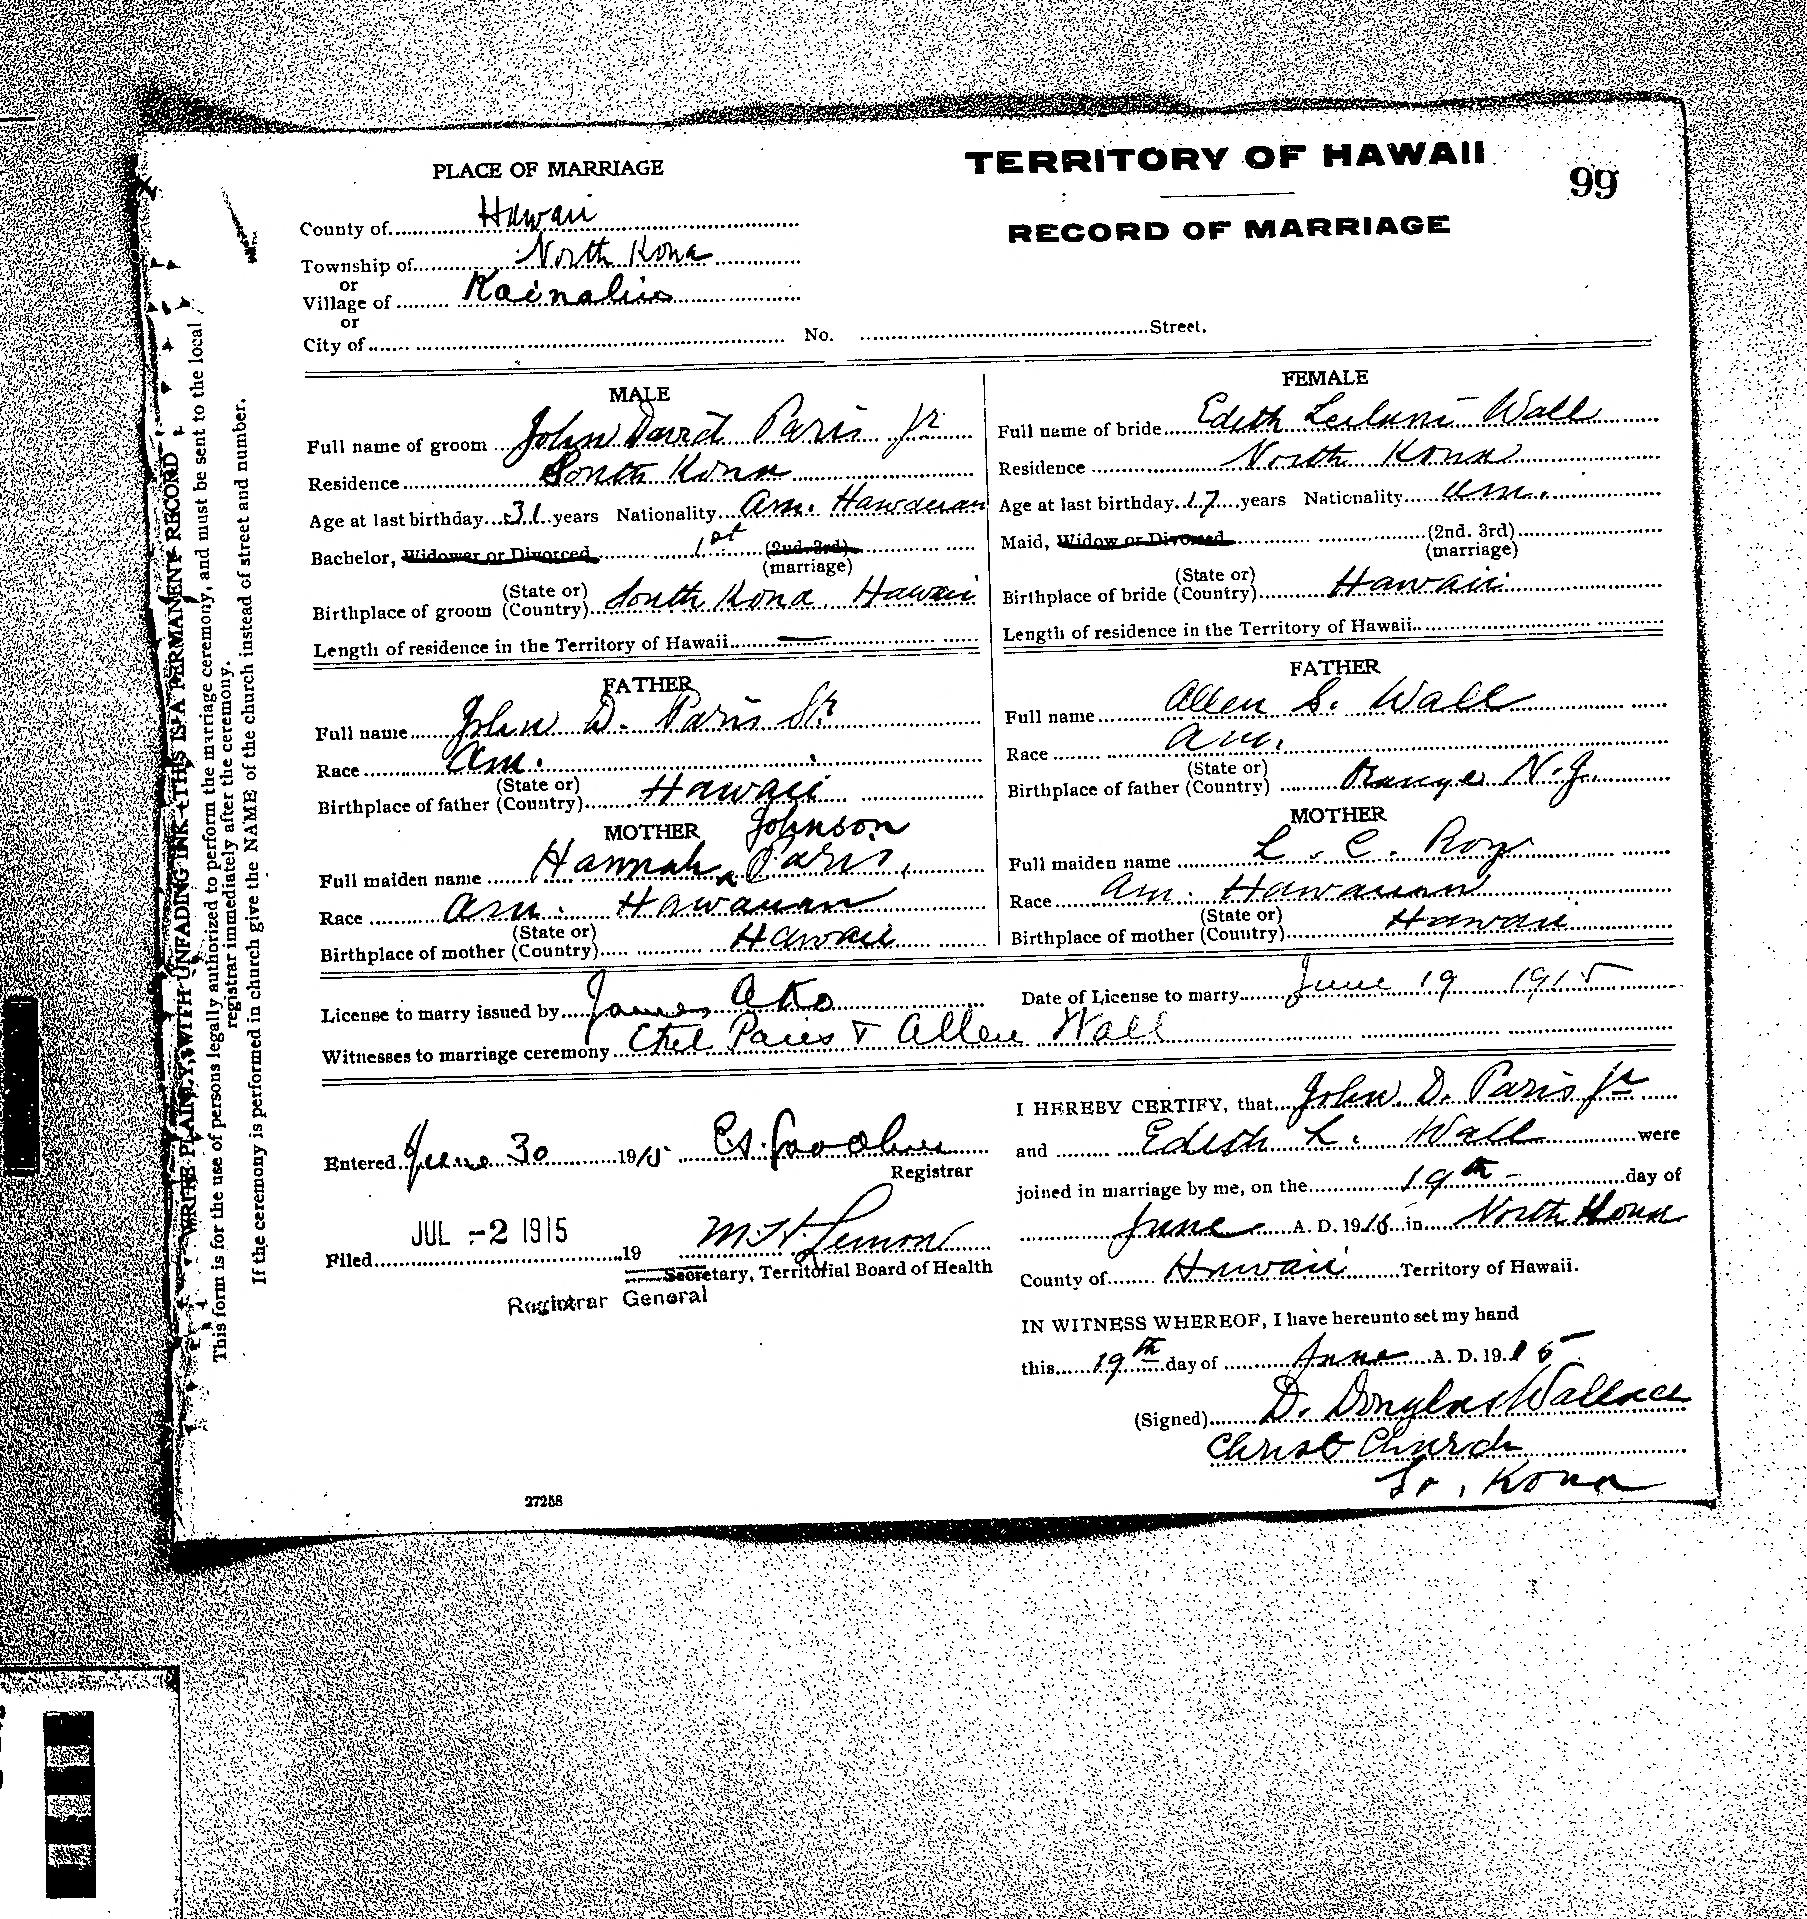 PLACE OF MARRIAGE
TERRITORY OF HAWAII
99
RECORD OF MARRIAGE
County of Hawaii
Township of North Kona
or
Village of Kainaliu
or
City of No. Street.
MALE
Full name of groom John David Paris Jr
Residence South Kona
Age at last birthday 31 years Nationality Am. Hawaiian
Bachelor, Widower or Divorced 1st (2nd. 3rd)
(marriage)
(State or)
Birthplace of groom (Country) South Kona Hawaii
Length of residence in the Territory of Hawaii —
FEMALE
Full name of bride Edith Leilani Wall
Residence North Kona
Age at last birthday 17 years Nationality Am.
Maid, Widow or Divorced (2nd. 3rd)
(marriage)
(State or)
Birthplace of bride (Country) Hawaii
Length of residence in the Territory of Hawaii
FATHER
Full name John D. Paris Sr
Race Am.
(State or)
Birthplace of father (Country) Hawaii
MOTHER Johnson
Full maiden name Hannah ^ Paris,
Race Am. Hawaiian
(State or)
Birthplace of mother (Country) Hawaii
FATHER
Full name Allen S. Wall
Race Am.
(State or)
Birthplace of father (Country) Orange N.J.
MOTHER
Full maiden name L. C. Roy
Race Am. Hawaiian
(State or)
Birthplace of mother (Country) Hawaii
License to marry issued by James Ako Date of License to marry June 19 1915
Witnesses to marriage ceremony Ethel Paris & Allen Wall
Entered June 30 1915
Registrar
Filed JUL -2 1915 19 M H Lemon
Secretary, Territorial Board of Health
Registrar General
27258
I HEREBY CERTIFY, that John D. Paris Jr
and Edith L. Wall were
joined in marriage by me, on the 19th day of
June A. D. 1915 in North Kona
County of Hawaii Territory of Hawaii.
IN WITNESS WHEREOF, I have hereunto set my hand
this 19th day of June A. D. 1915
(Signed) D. Douglas Wallace
Christ Church
So. Kona
WRITE PLAINLY, WITH UNFADING INK—THIS IS A PERMANENT RECORD
This form is for the use of persons legally authorized to perform the marriage ceremony, and must be sent to the local
registrar immediately after the ceremony.
If the ceremony is performed in church give the NAME of the church instead of street and number.